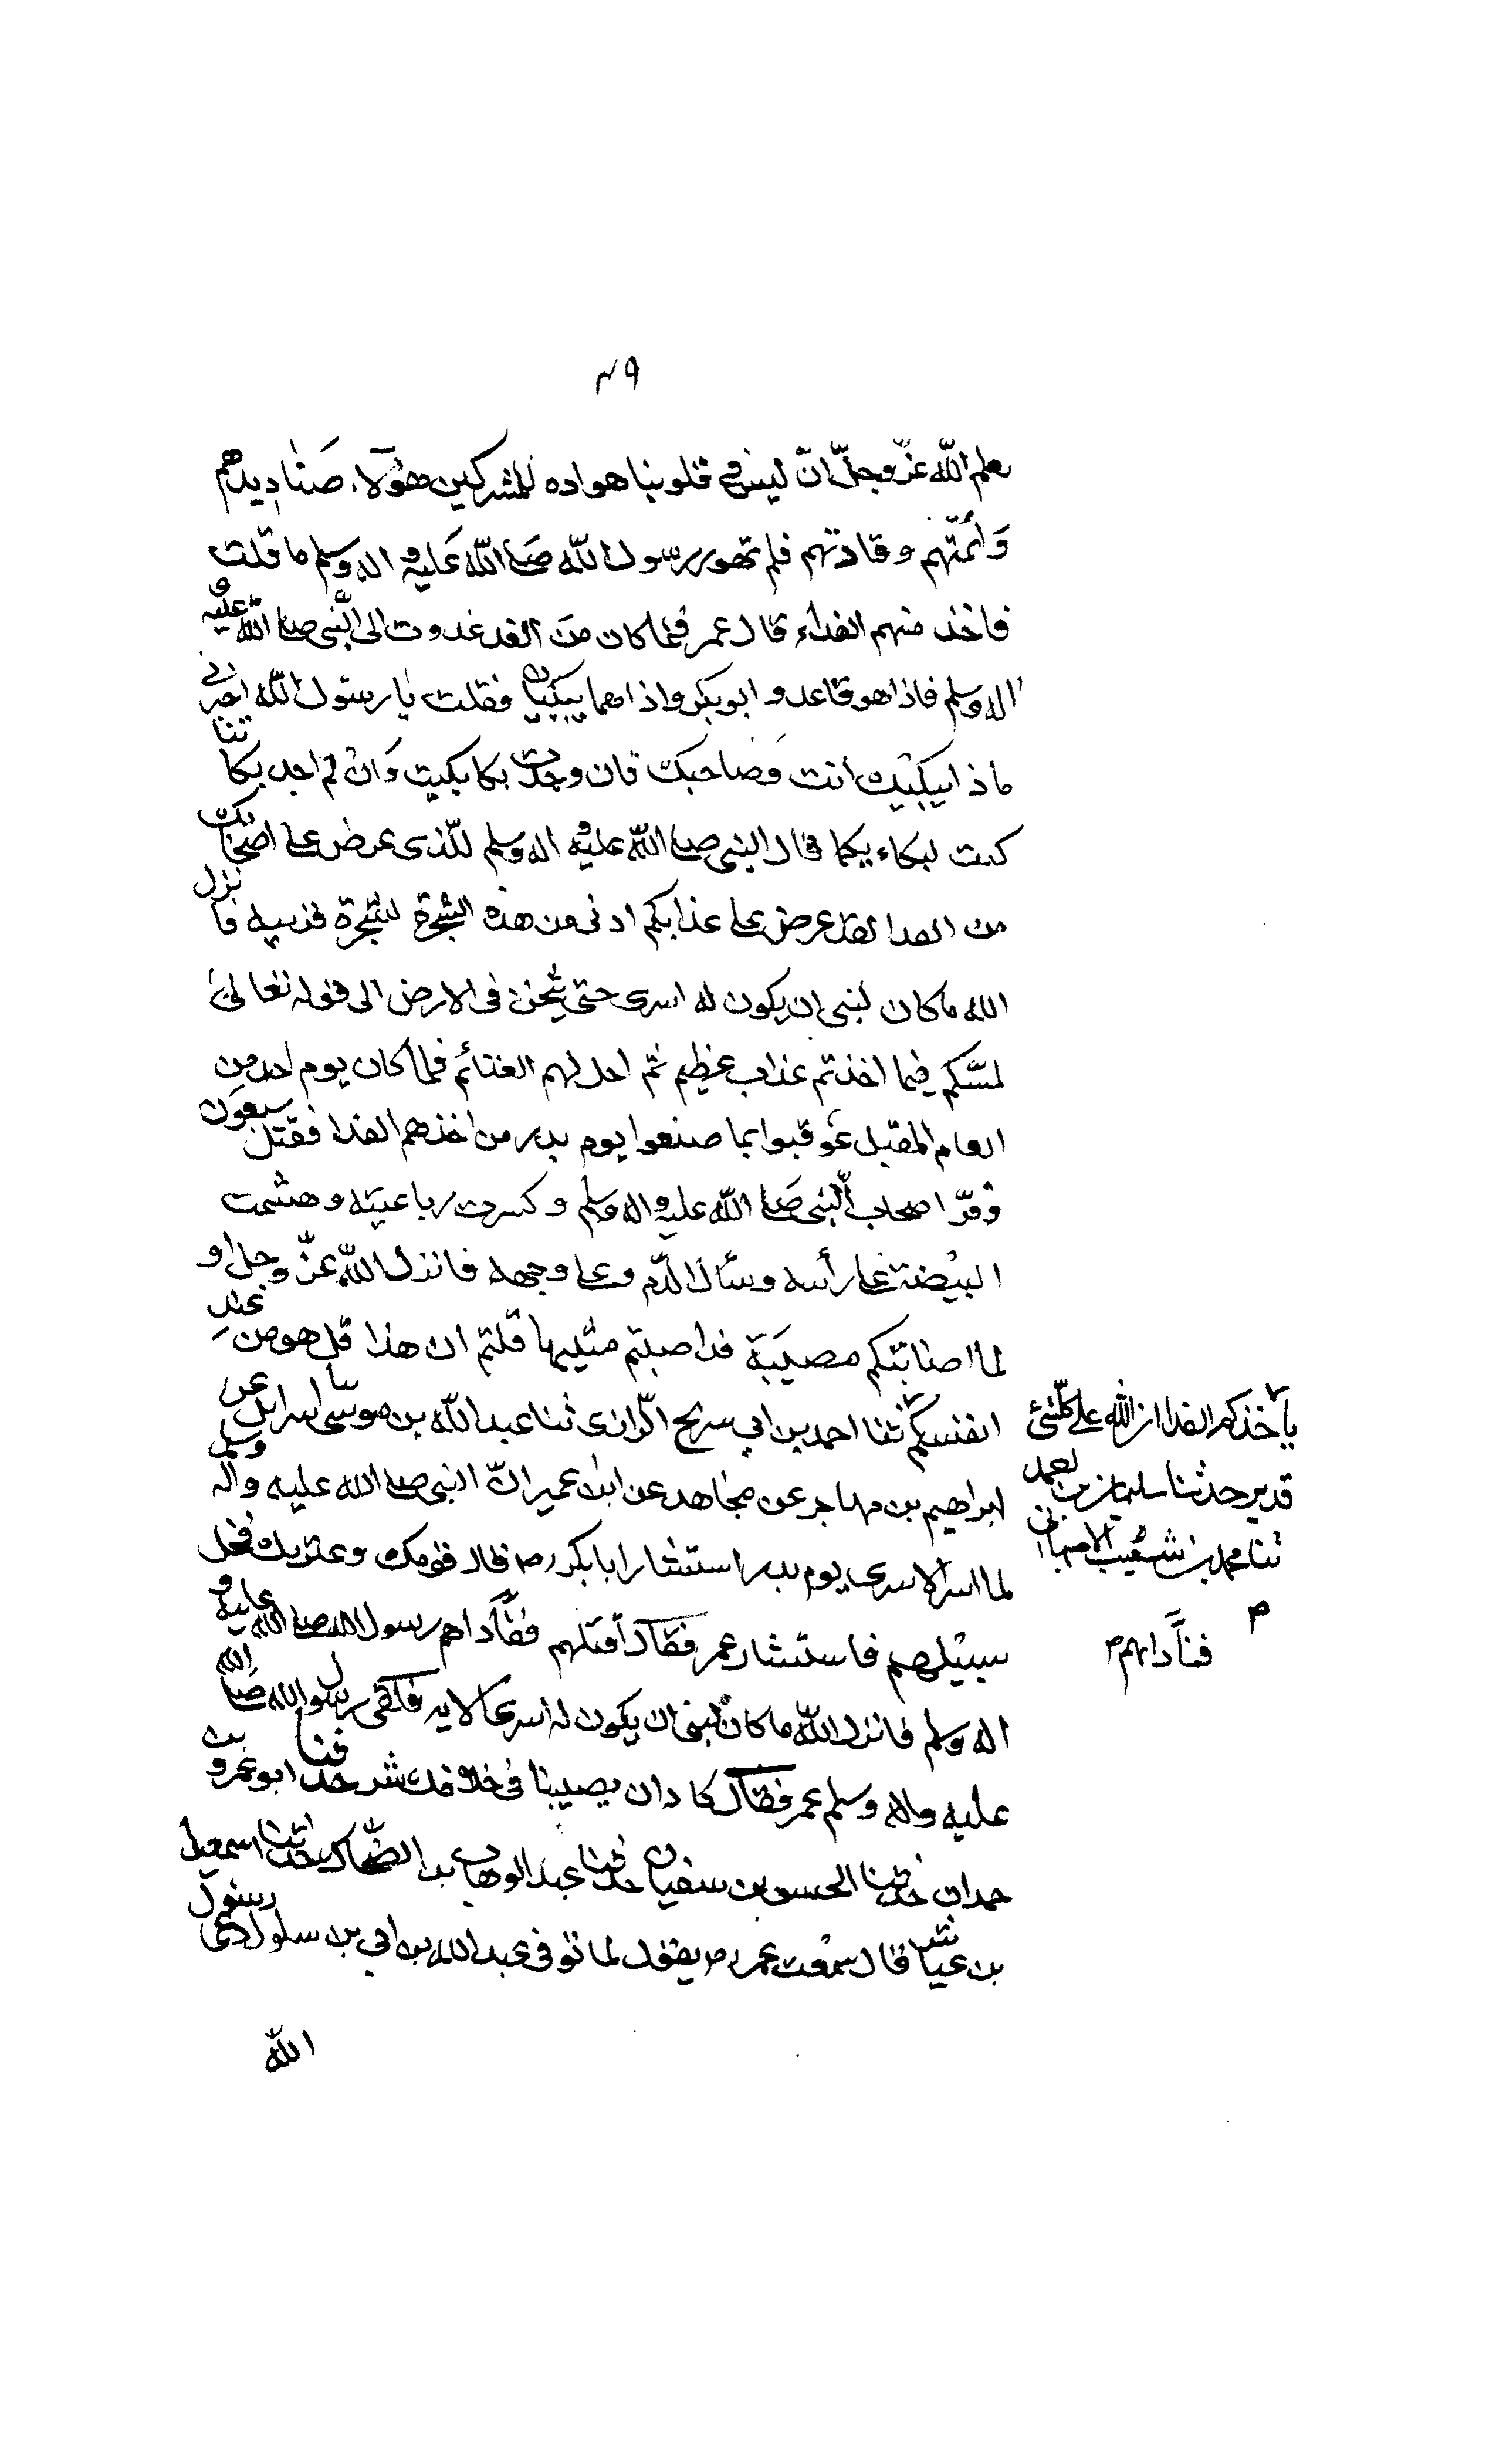 ٤٩
يعلم الله عزّ وجلّ انّ ليس في قلوبنا هواده للمشركين هؤلاء صناديدهم
وَأئمّتهم وقادتهم فلم يهو رسول الله صَلى الله عَليه و اله وسلم ما قلت
فاخذ منهم الفداء قال عمر فلما كان منَ الغد غدوت الى النّبي صلى الله عليه و
اله وسلم فاذا هو قاعد و ابو بكر واذا هما يبكيان فقلت يا رسول الله اخبرني
ماذا يبكيك انت وصاحبك فان وجدت بكا بكيت وَان لم اجد بكا
كيت لبكاء يكما قال النبي صلى الله عليه و اله وسلم للذى عرض على اصحابك
من الفدا لقد عرض على عذابكم ادنى من هذه الشجرة لشجرة قريبه فانزل
الله ما كان لنبي ان يكون له اسرى حتى يثخن في الارض الى قوله تعالى
لمسّكم فيما اخذتم عذاب عظيم ثم احل لهم الغنائم فلما كان يوم احد من
العام المقبل عوقبوا بما صنعوا يوم بدر من اخذهم الفدا فقتل سبعون
وفرّ اصحاب النّبي صَلى الله عليه و اله وسلم و كسرت رباعيته و هشمت
البيضة على رأسه وسال الدّم وعلى وجهه فانزل الله عزّ وجل او
لما اصابتكم مصيبَة قد اصبتم مثليها قلتم ان هذا قل هو من عند
انفسكم ثنا احمد بن ابي سريج الرّازى ثنا عبد الله بن موسى اسرايل عن
ابراهيم بن مهاجر عن مجاهد عن ابن عمير انّ النبي صلى الله عليه واله وسلم
لما اسر الاسرى يوم بدر استشار ابا بكر رض فقال قومك وعترتك فخل
سبيلهم فاستشار عمر فقال اقتلهم ففاداهم رسول الله صلى الله عليه و
اله وسلم فانزل الله ما كان لنبي ان يكون له اسرى الايه فلقى رسول الله صَلى الله
عليه واله وسلم عمر فقال كاد ان يصيبنا في خلافك شر حدثنا ابو عمرو بن
حمدان حدثنا الحسن بن سفيان حدثنا عبد الوهاب الضّحاك حدثنا اسمعيل
بن عياش قال سمعت عمر رض يقول لما توفى عبد الله بن ابي بن سلول دعى رسول
الله
يأخذكم الفدا ان الله على كلّ شئ
قدير حدثنا سليمان بن احمد
ثنا محمد بن شعيب الاصبهاني
فنادابهم